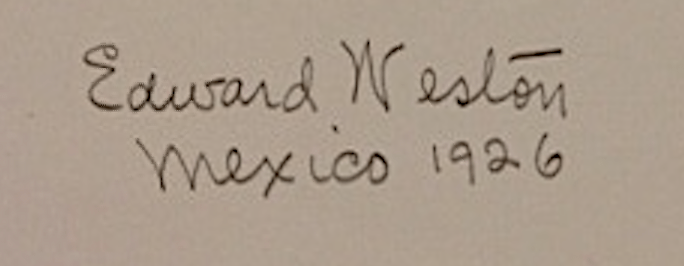 Edward Weston
Mexico 1926